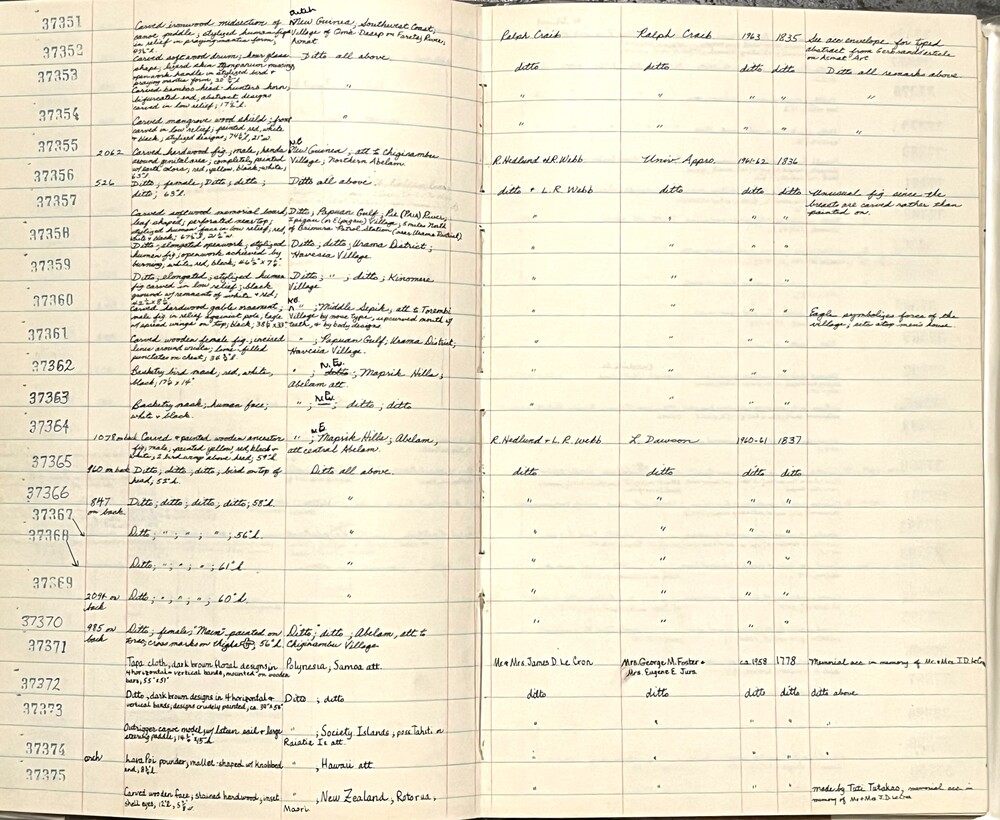 37351
Carved ironwood midsection of
canoe paddle, stylized human fig
in relief in praying mantis form,
Dutch
New Guinea, Southwest Coast;
Village of Oma Desep on Faretsj River,
Asmat
Ralph Craib Ralph Craib 1963 1835 See acc envelope for typed
abstract from Gerbrands article
on Asmat Art
37352
Carved softwood drum, hour glass
shape, lizard skin tympanum missing,
openwork handle in stylized bird &
praying mantis form, 20½"l
Ditto all above
ditto ditto ditto ditto Ditto all remarks above
37353
Carved bamboo head-hunters horn,
bifurcated end, abstract designs
carved in low relief; 17½"l
" " " " " "
37354
Carved mangrove wood shield; front
carved in low relief; painted red, white
& black; stylized designs, 74½"l, 21"w
" " " " " "
37355
2062 Carved hardwood fig, male, hands
around genital area; completely painted
w/earth colors, red, yellow, black, white,
63"l
N.E.
New Guinea, att to Chiginambu
Village, Northern Abelam
R. Hedlund & R. Webb Univ Appro. 1961-62 1836
37356
526 Ditto; female, Ditto; ditto;
ditto; 63"l
Ditto all above.
ditto & L.R. Webb ditto ditto ditto Unusual fig since the
breasts are carved rather than
painted on.
37357
Carved softwood memorial board,
leaf shaped; perforated near top;
stylized human face in low relief, red,
white & black;
Ditto, Papuan Gulf, Pie (Pai) River,
Epigau (or Elpigau) Village, 5 miles North
of Baimuru Patrol Station (near Urama District)
" " " "
37358
Ditto; elongated openwork, stylized
human fig; openwork achieved by
burning, white, red, black; 46½"x7½"
Ditto; ditto; Urama District;
Havesia Village
" " " "
37359
Ditto; elongated; stylized human
fig carved in low relief; black
ground w/remnants of white & red;
Ditto; " ; ditto; Kinomere
Village
" " " "
37360
Carved hardwood gable ornament;
male fig in relief against pole, eagle
w/spread wings on top; black;
N.E.
" ; Middle Sepik, att to Torembi
Village by nose type, upcurved mouth w/
teeth, & by body designs
" " " " Eagle symbolizes force of the
village; sits atop men's house.
37361
Carved wooden female fig, incised
lines around wrists; lime-filled
punctates on chest; 34½"l
" ; Papuan Gulf; Urama District,
Havesia Village.
" " " "
37362
Basketry bird mask, red, white,
black; 17½ x 14"
N.E.
" ; ditto; Maprik Hills;
Abelam att.
" " " "
37363
Basketry mask; human face;
white & black.
N.E.
" ; ditto; ditto
" " " "
37364
1078 on back Carved & painted wooden ancestor
fig, male, painted yellow, red, black &
white; 2 bird wings above head; 59"l
N.E.
" ; Maprik Hills; Abelam,
att central Abelam.
R. Hedlund & L.R. Webb. L. Dawson 1960-61 1837
37365
960 on back Ditto, ditto; ditto; bird on top of
head, 52"l.
Ditto all above.
ditto ditto ditto ditto
37366
847
on back
Ditto; ditto; ditto, ditto; 58"l
" " " " "
37367
Ditto; " ; " ; " ; 56"l.
" " " " "
37368
Ditto; " ; " ; " ; 61"l
" " " " "
37369
2094 on
back
Ditto; " ; " ; " ; 60"l.
" " " " "
37370
985 on
back
Ditto; female; "Main" painted on
torso; cross marks on thighs, 56"l
Ditto; ditto; Abelam, att to
Chiginambu Village
" " " "
37371
Tapa cloth, dark brown floral designs, in
4 horizontal & vertical bands, mounted on wooden
bars, 55"x51"
Polynesia, Samoa att.
Mr & Mrs. James D. Le Cron Mrs. George M. Foster &
Mrs. Eugene E. Jura ca 1958 1778 Memorial acc in memory of Mr. & Mrs J.D. LeCron
37372
Ditto, dark brown designs in 4 horizontal &
vertical bands, designs crudely painted,
Ditto ; ditto
ditto ditto ditto ditto ditto above
37373
Outrigger canoe model, w/ lateen sail & large
steering paddle;
" ; Society Islands, poss Tahiti or
Raiatea Is att.
" " " " "
37374
Lava Poi pounder, mallet-shaped w/ knobbed
end, 8½"l.
" , Hawaii att
" " " " "
37375
Carved wooden face; stained hardwood, inset
shell eyes,
" , New Zealand, Rotorua,
Maori.
" " " " made by Tuti Tukaokao, memorial acc in
memory of Mr & Mrs J.D. LeCron